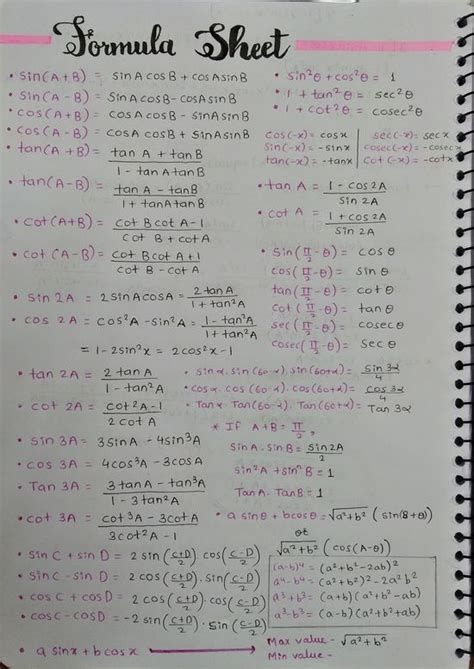 Formula Sheet
• sin(A+B) = sinA cosB + cosAsinB
• sin(A-B) = sinAcosB-cosAsinB
• cos(A+B) = cosA cosB - sinAsinB
• cos(A-B) = cosA cosB + sinAsinB
• tan(A+B) = tan A + tanB / 1 - tanA tanB
• tan(A-B) = tanA - tanB / 1 + tanA tanB
• cot(A+B) = cot B cot A - 1 / cot B + cot A
• cot (A-B) = cot B cot A + 1 / cot B - cot A
• sin 2A = 2 sin A cosA = 2 tanA / 1 + tan²A
• cos 2A = cos²A - sin²A = 1 - tan²A / 1 + tan²A
= 1 - 2sin²x = 2cos²x - 1
• tan 2A = 2 tanA / 1 - tan²A
• cot 2A = cot²A - 1 / 2 cot A
• sin 3A = 3 sin A - 4 sin³A
• cos 3A = 4cos³A - 3cosA
• Tan 3A = 3 tanA - tan³A / 1 - 3tan²A
• cot 3A = cot³A - 3cotA / 3cot²A - 1
• sin C + sin D = 2 sin (C+D / 2) cos (C-D / 2)
• sin C - sin D = 2 cos (C+D / 2) sin (C-D / 2)
• cos C + cos D = 2 cos (C+D / 2) cos (C-D / 2)
• cos C - cos D = -2 sin (C+D / 2) sin (C-D / 2)
• a sinx + b cosx → Max value - √a²+b²
Min value -
• sin²θ + cos²θ = 1
• 1 + tan²θ = sec²θ
• 1 + cot²θ = cosec²θ
cos(-x) = cosx | sec(-x) = sec x
sin(-x) = -sinx | cosec(-x) = -cosecx
tan(-x) = -tanx | cot (-x) = -cotx
• tan A = 1 - cos 2A / sin 2A
• cot A = 1 + cos 2A / sin 2A
• sin(π/2 - θ) = cos θ
cos(π/2 - θ) = sin θ
tan(π/2 - θ) = cot θ
cot (π/2 - θ) = tan θ
sec (π/2 - θ) = cosec θ
cosec(π/2 - θ) = sec θ
• sin α. sin(60-α). sin(60+α) = sin 3α / 4
• cos α. cos(60-α). cos(60+α) = cos 3α / 4
• Tan α. Tan(60-α). Tan(60+α) = Tan 3α
* If A+B = π/2,
Sin A. Sin B = sin 2A / 2
sin²A + sin²B = 1
Tan A. Tan B = 1
• a sinθ + b cosθ = √a²+b² ( sin(B+θ)
or
√a²+b² ( cos(A-θ)
(a-b)⁴ = (a²+b²-2ab)²
a⁴-b⁴ = (a²+b²)²-2a²b²
a³+b³ = (a+b)(a²+b²-ab)
a³-b³ = (a-b)(a²+b²+ab)